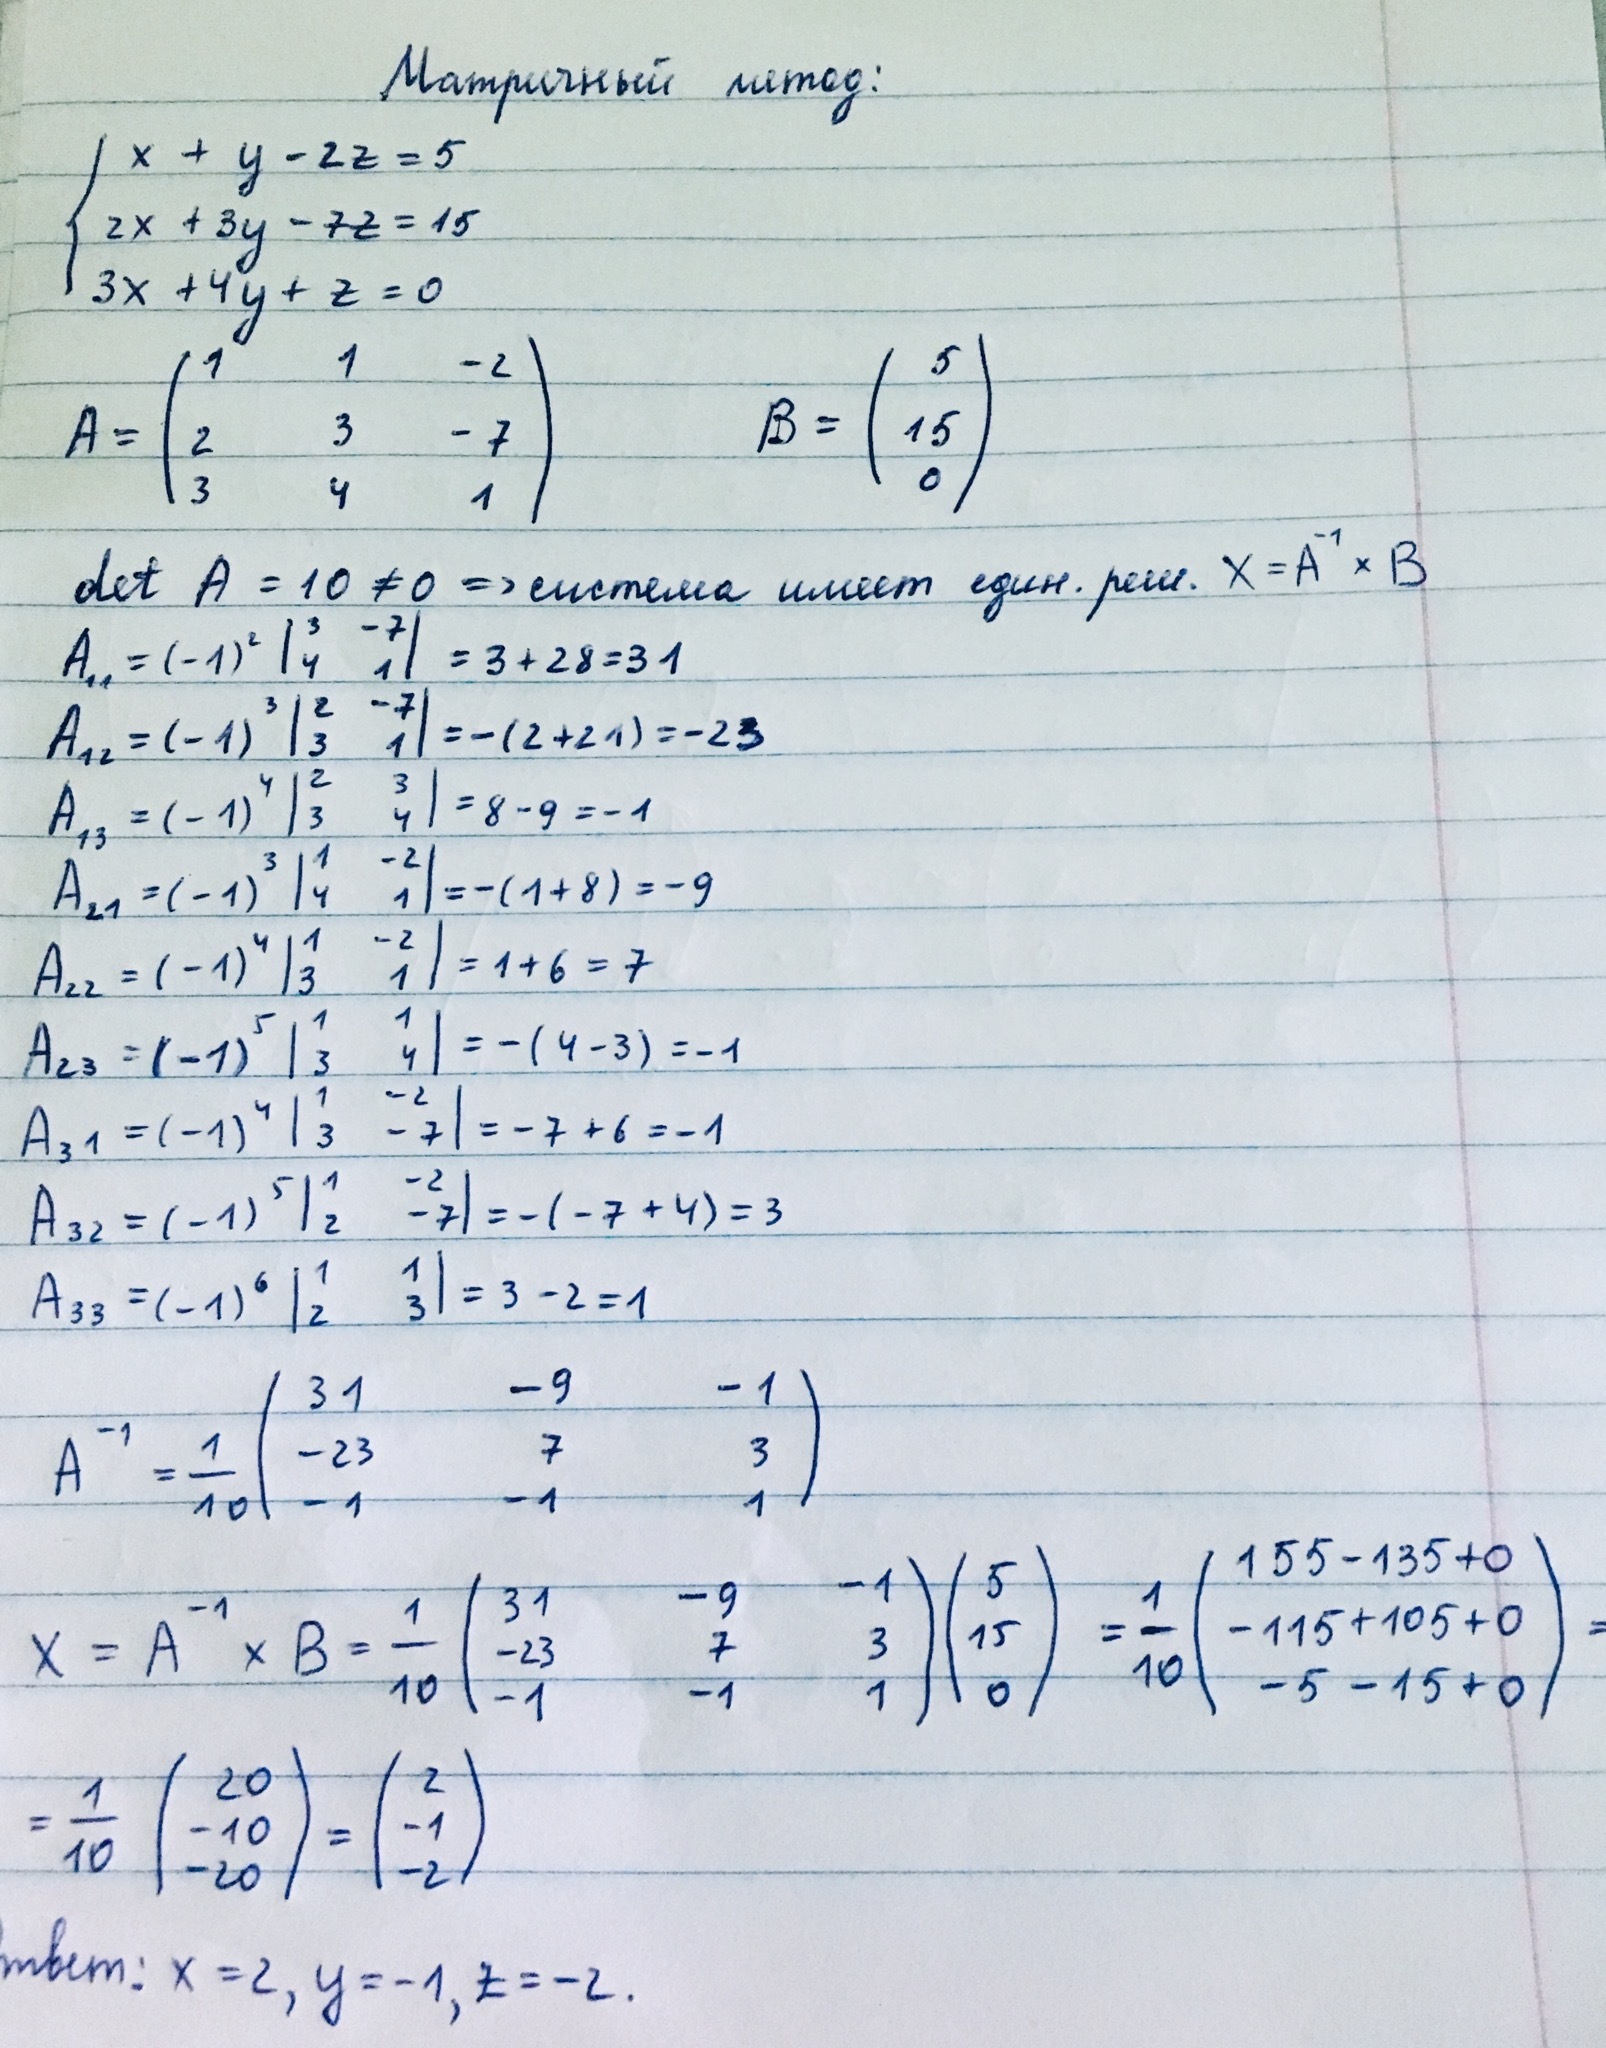 Матричный метод:
x + y - 2z = 5
2x + 3y - 7z = 15
3x + 4y + z = 0
1 1 -2 5
A = 2 3 -7 B = 15
3 4 1 0
det A = 10 ≠ 0 => система имеет един. реш. X = A⁻¹ × B
A₁₁ = (-1)² |3 -7; 4 1| = 3 + 28 = 31
A₁₂ = (-1)³ |2 -7; 3 1| = -(2+21) = -23
A₁₃ = (-1)⁴ |2 3; 3 4| = 8 - 9 = -1
A₂₁ = (-1)³ |1 -2; 4 1| = -(1+8) = -9
A₂₂ = (-1)⁴ |1 -2; 3 1| = 1 + 6 = 7
A₂₃ = (-1)⁵ |1 1; 3 4| = -(4-3) = -1
A₃₁ = (-1)⁴ |1 -2; 3 -7| = -7 + 6 = -1
A₃₂ = (-1)⁵ |1 -2; 2 -7| = -(-7+4) = 3
A₃₃ = (-1)⁶ |1 1; 2 3| = 3 - 2 = 1
31 -9 -1
A⁻¹ = 1/10 -23 7 3
-1 -1 1
31 -9 -1 5 155-135+0
X = A⁻¹ × B = 1/10 -23 7 3 15 = 1/10 -115+105+0 =
-1 -1 1 0 -5-15+0
20 2
= 1/10 -10 = -1
-20 -2
твет: x = 2, y = -1, z = -2.